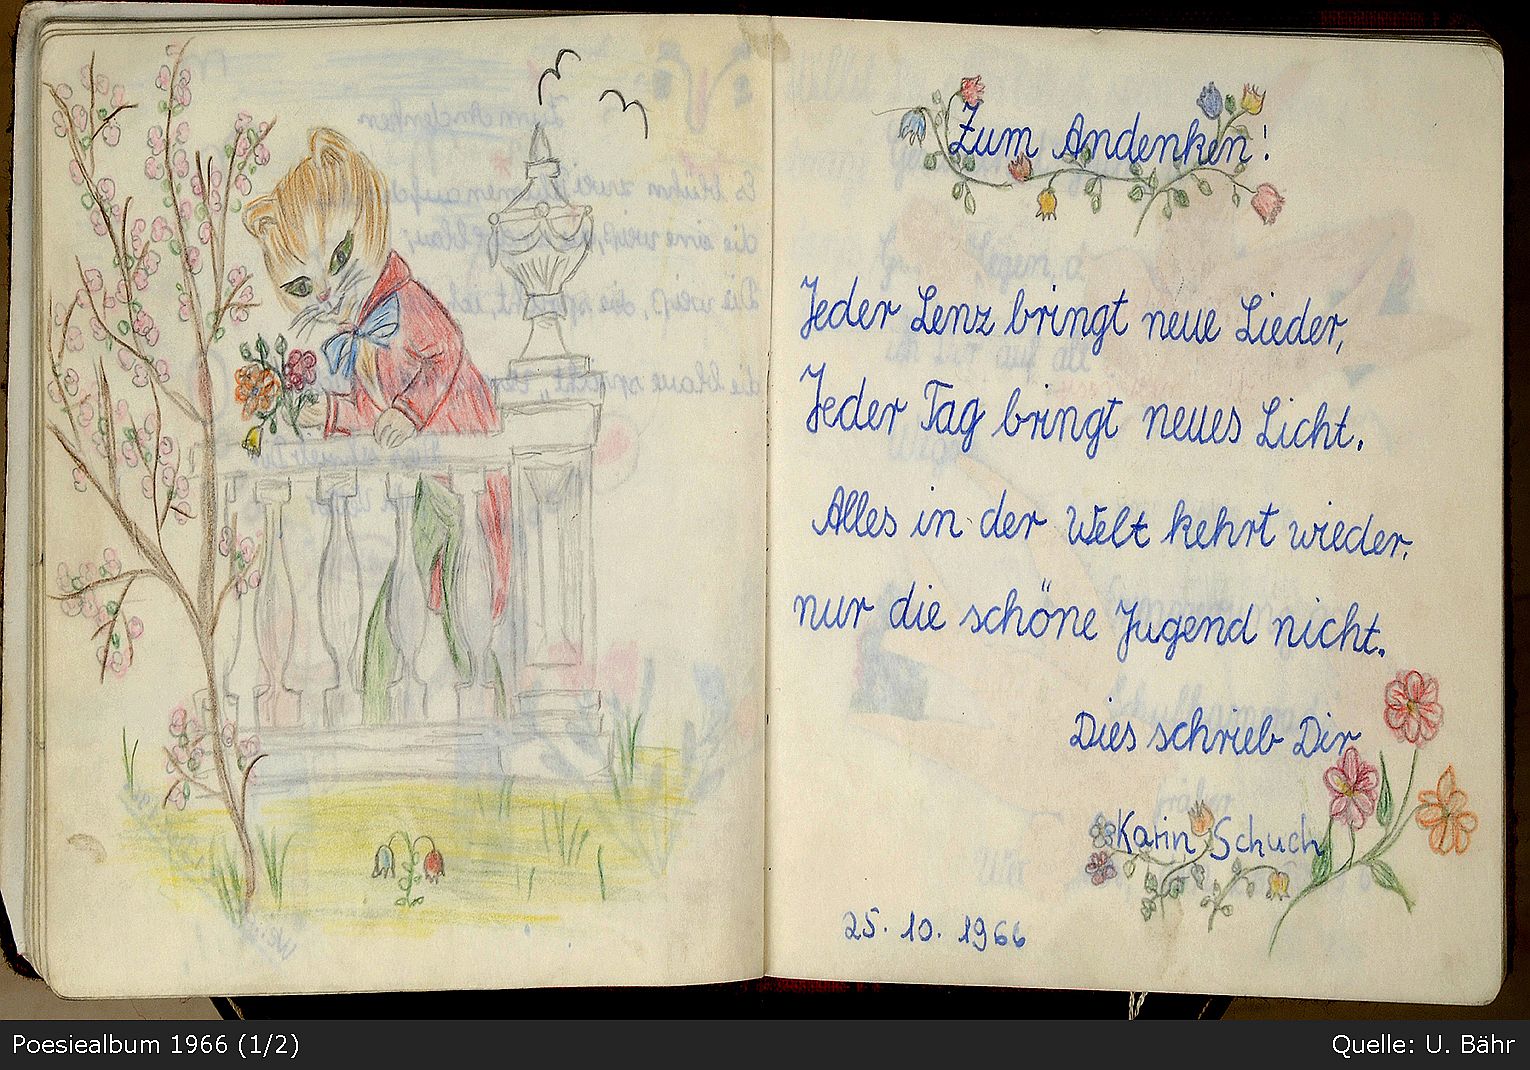 Zum Andenken!
Jeder Lenz bringt neue Lieder,
Jeder Tag bringt neues Licht.
Alles in der Welt kehrt wieder.
nur die schöne Jugend nicht.
Dies schrieb Dir
Karin Schuch
25. 10. 1966
Poesiealbum 1966 (1/2)
Quelle: U. Bähr